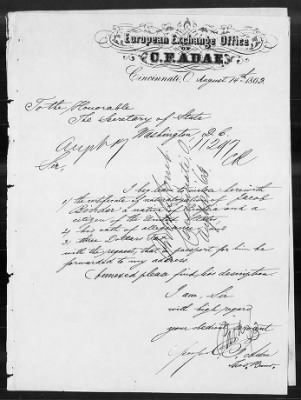 European Exchange Office
OF
C. F. ADAE
Cincinnati, O. August 14th 1869
To the Honorable
The Secretary of State
Washington, D.C.
11297
Sir,
I beg leave to enclose herewith
1) the certificate of naturalization of Jacob
a native of and a
citizen of the United States
2) his oath of allegiance
3) three Dollars
with the request, that a passport for him be
forwarded to my address
Annexed please find his description.
I am, Sir
with high regard
your obedient servant